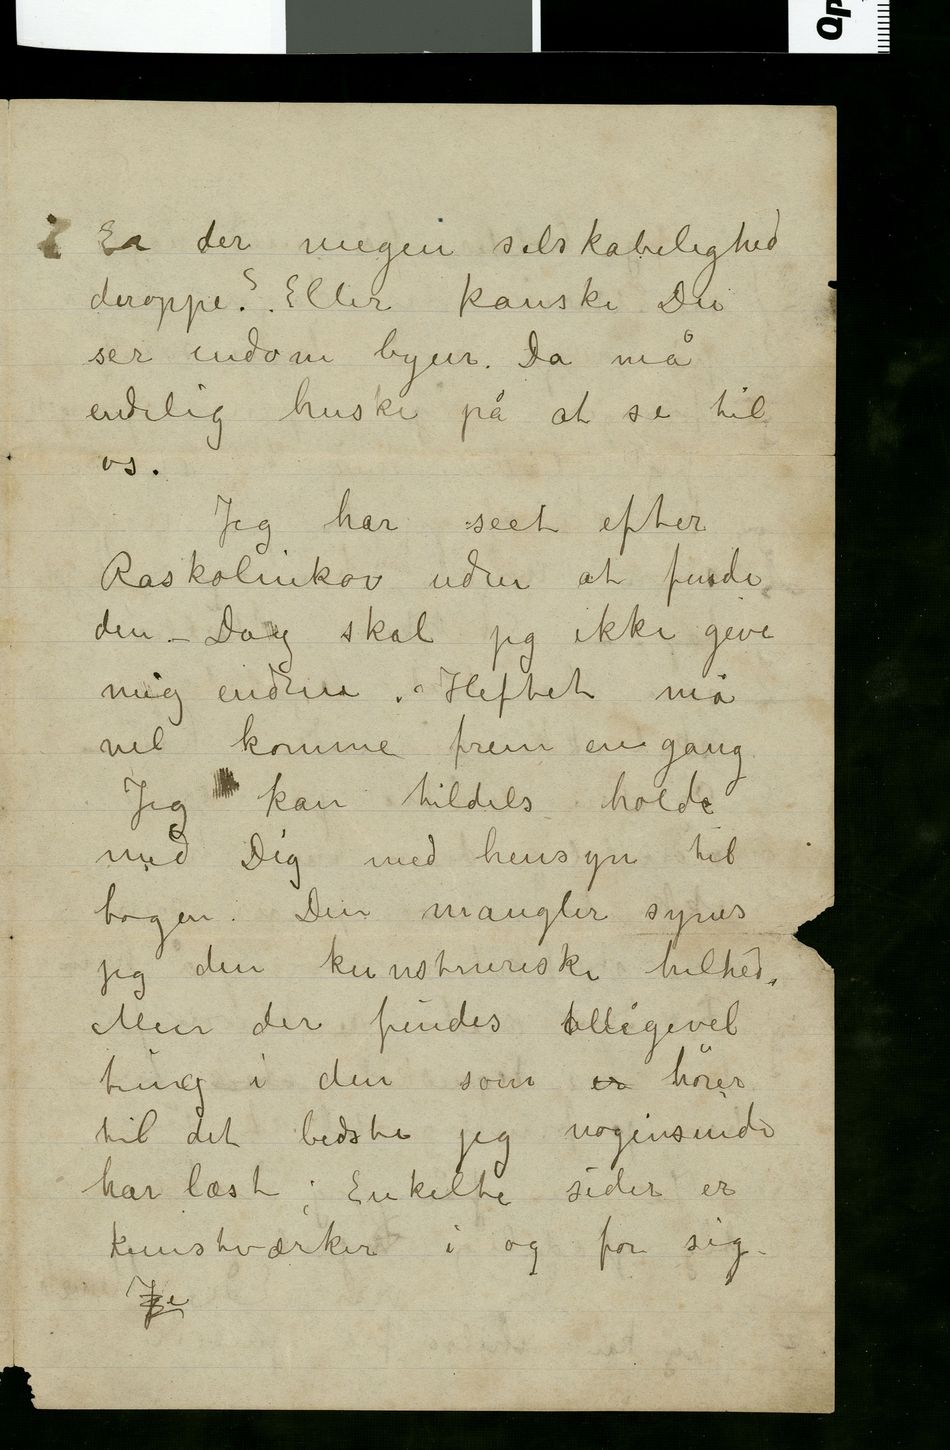 Er der megen selskabelighed
deroppe? Eller kanske Du
ser indom byen. Da må
endelig huske på at se til
os.
Jeg har seet efter
Raskolnikov uden at finde
den – Dog skal jeg ikke give
mig endnu. Heftet må
vel komme frem engang
Jeg kan tildels holde
med Dig med hensyn til
bogen. Den mangler synes
jeg den kunstneriske helhed.
Men der findes alligevel
ting i den som er hører
til det bedste jeg nogensinde
har læst; Enkelte sider er
kunstværker i og for sig.
Je
Op